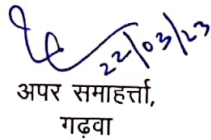 22/03/23
अपर समाहर्त्ता,
गढ़वा